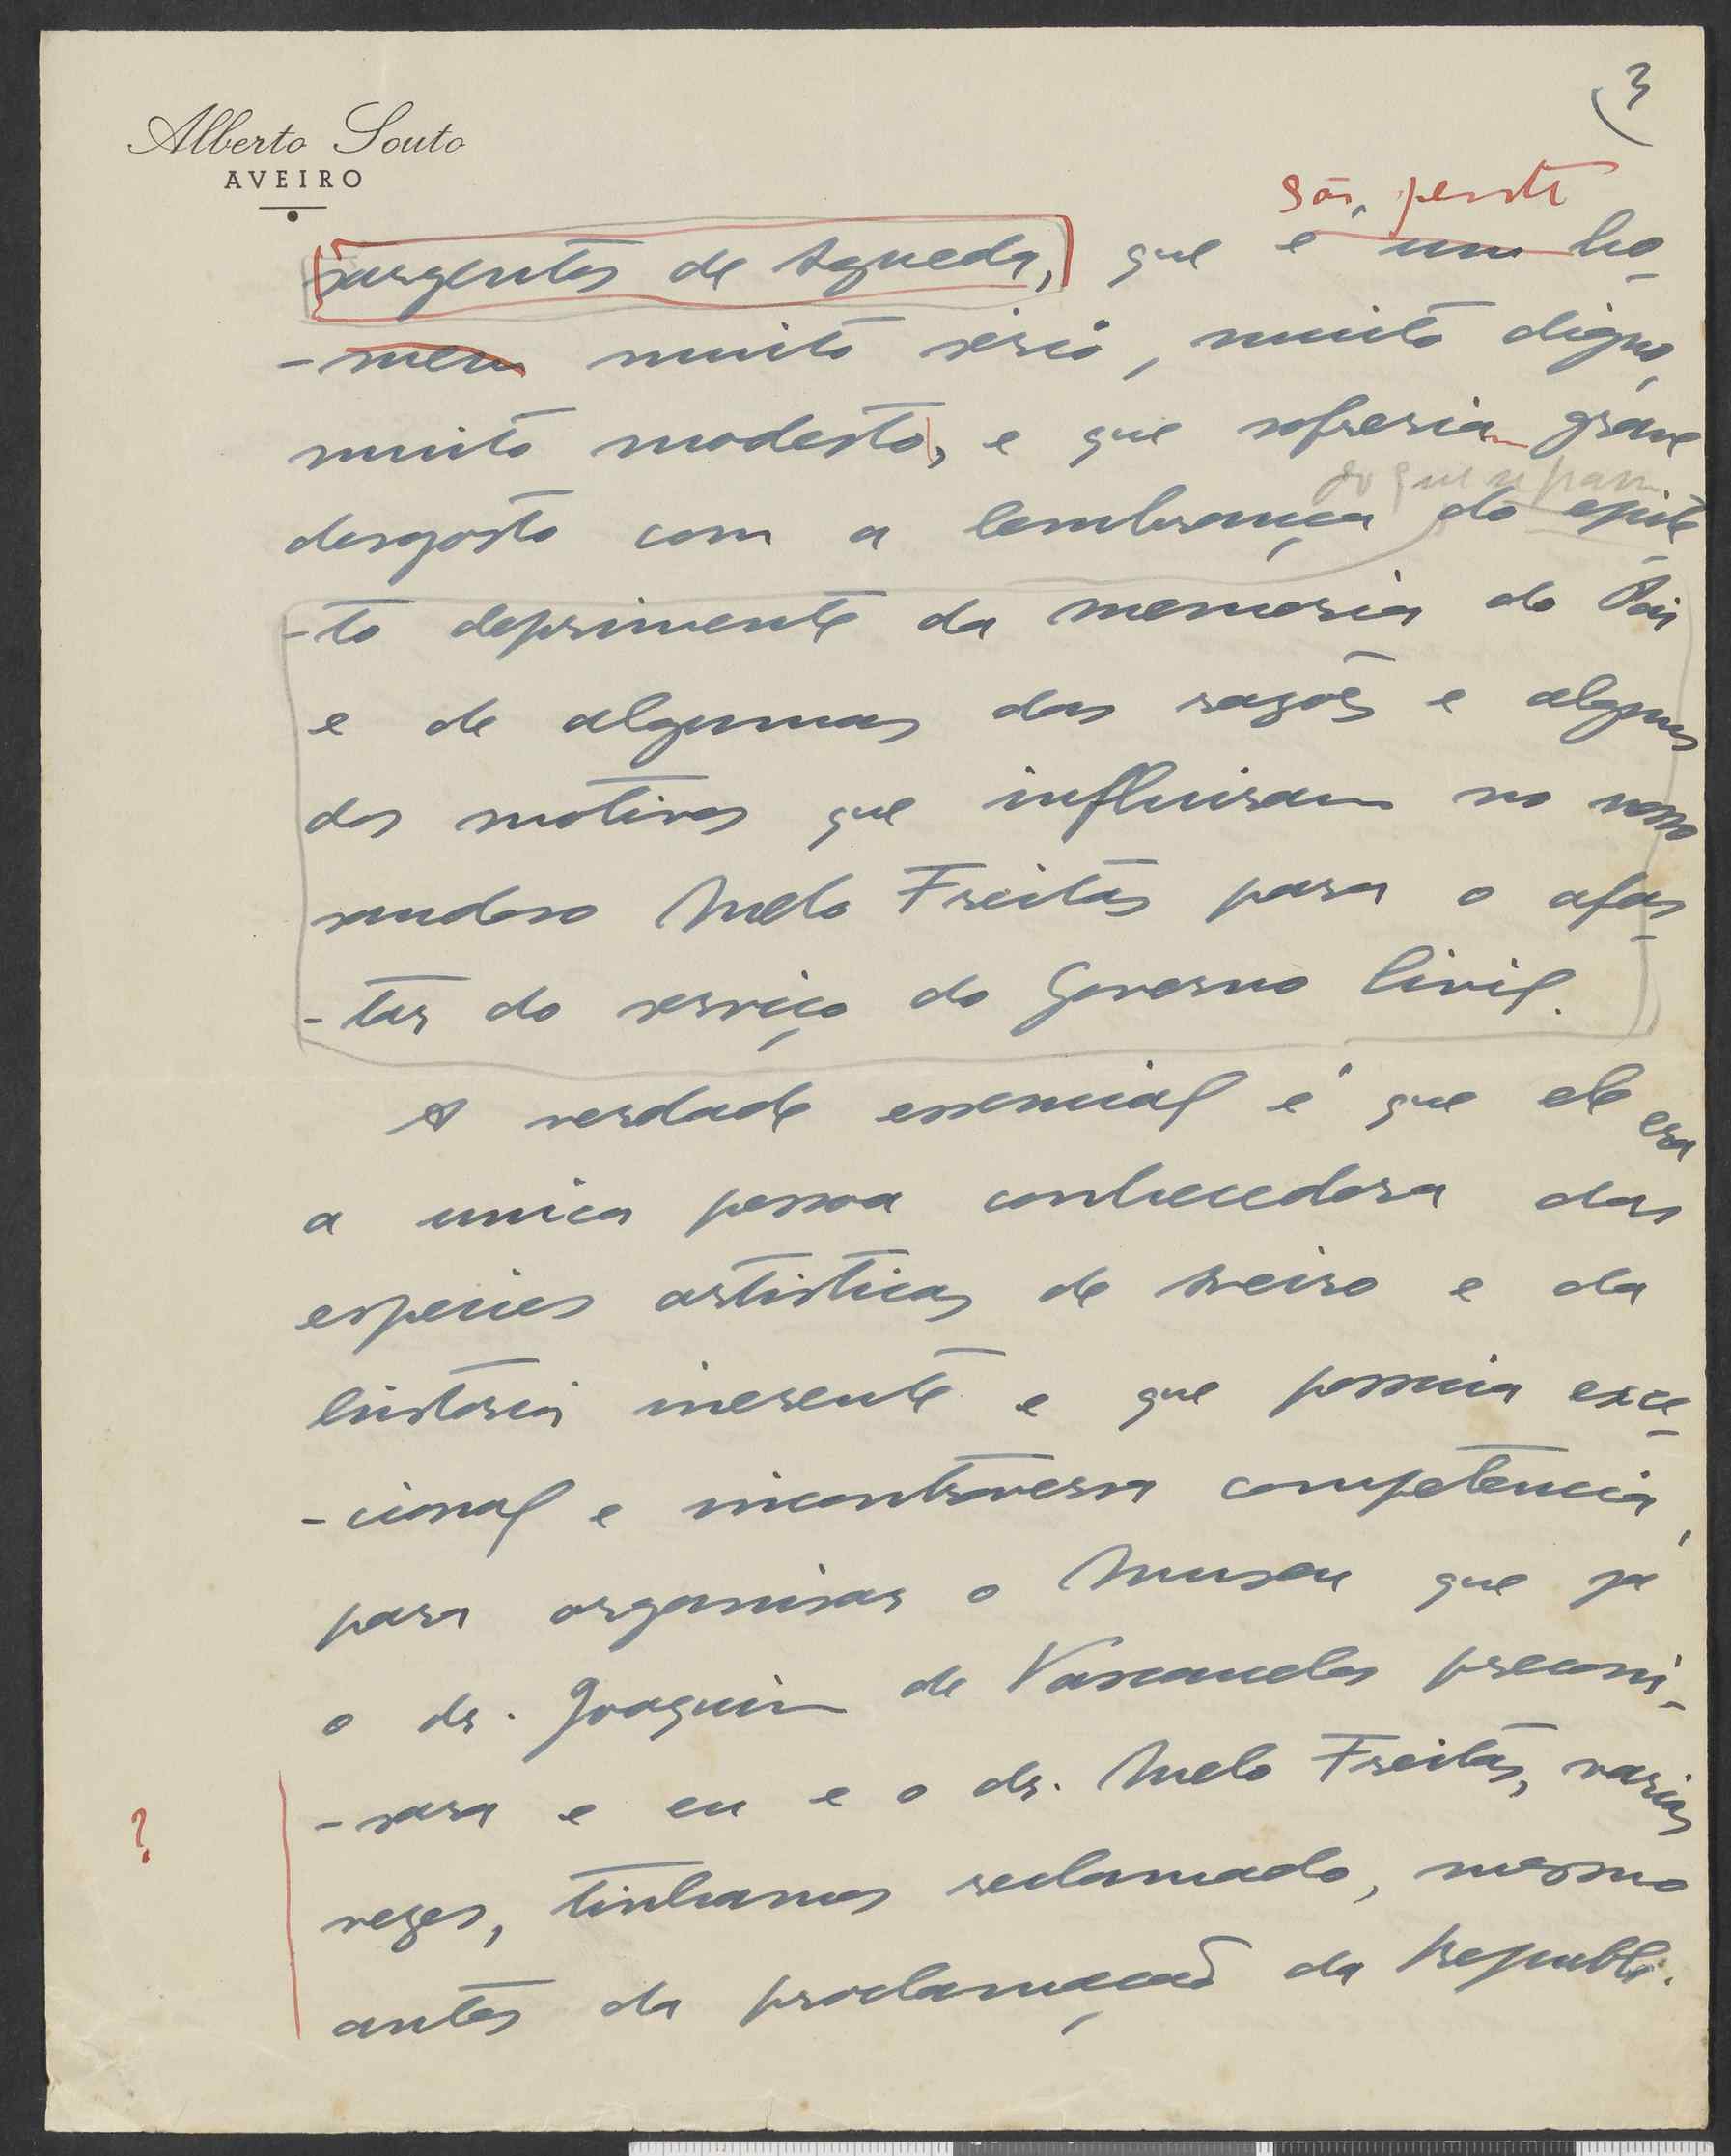 3
Alberto Souto
AVEIRO
são gente
sargentos de Agueda, que e um ho-
-mem muito sério, muito digno,
muito modesto, e que sofreria grave
do que se passou
desgosto com a lembrança do epite-
-to deprimente da memoria do Pai
e de algumas das razões e alguns
dos motivos que influiram no nosso
saudoso Melo Freitas para o afas-
-tar do serviço do Governo Civil.
A verdade essencial é que ele era
a unica pessoa conhecedora das
especies artisticas de Aveiro e da
historia inerente e que possuia exce-
-cional e incontroversa competencia,
para organisar o Museu que já
o dr. Joaquim de Vasconcelos preconi-
-sara e eu e o dr. Melo Freitas, varias
?
vezes, tinhamos reclamado, mesmo
antes da proclamação da Republi-